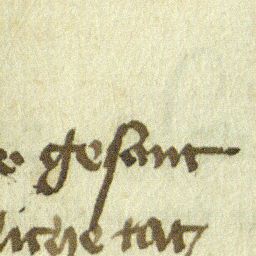 gesant
liche tat